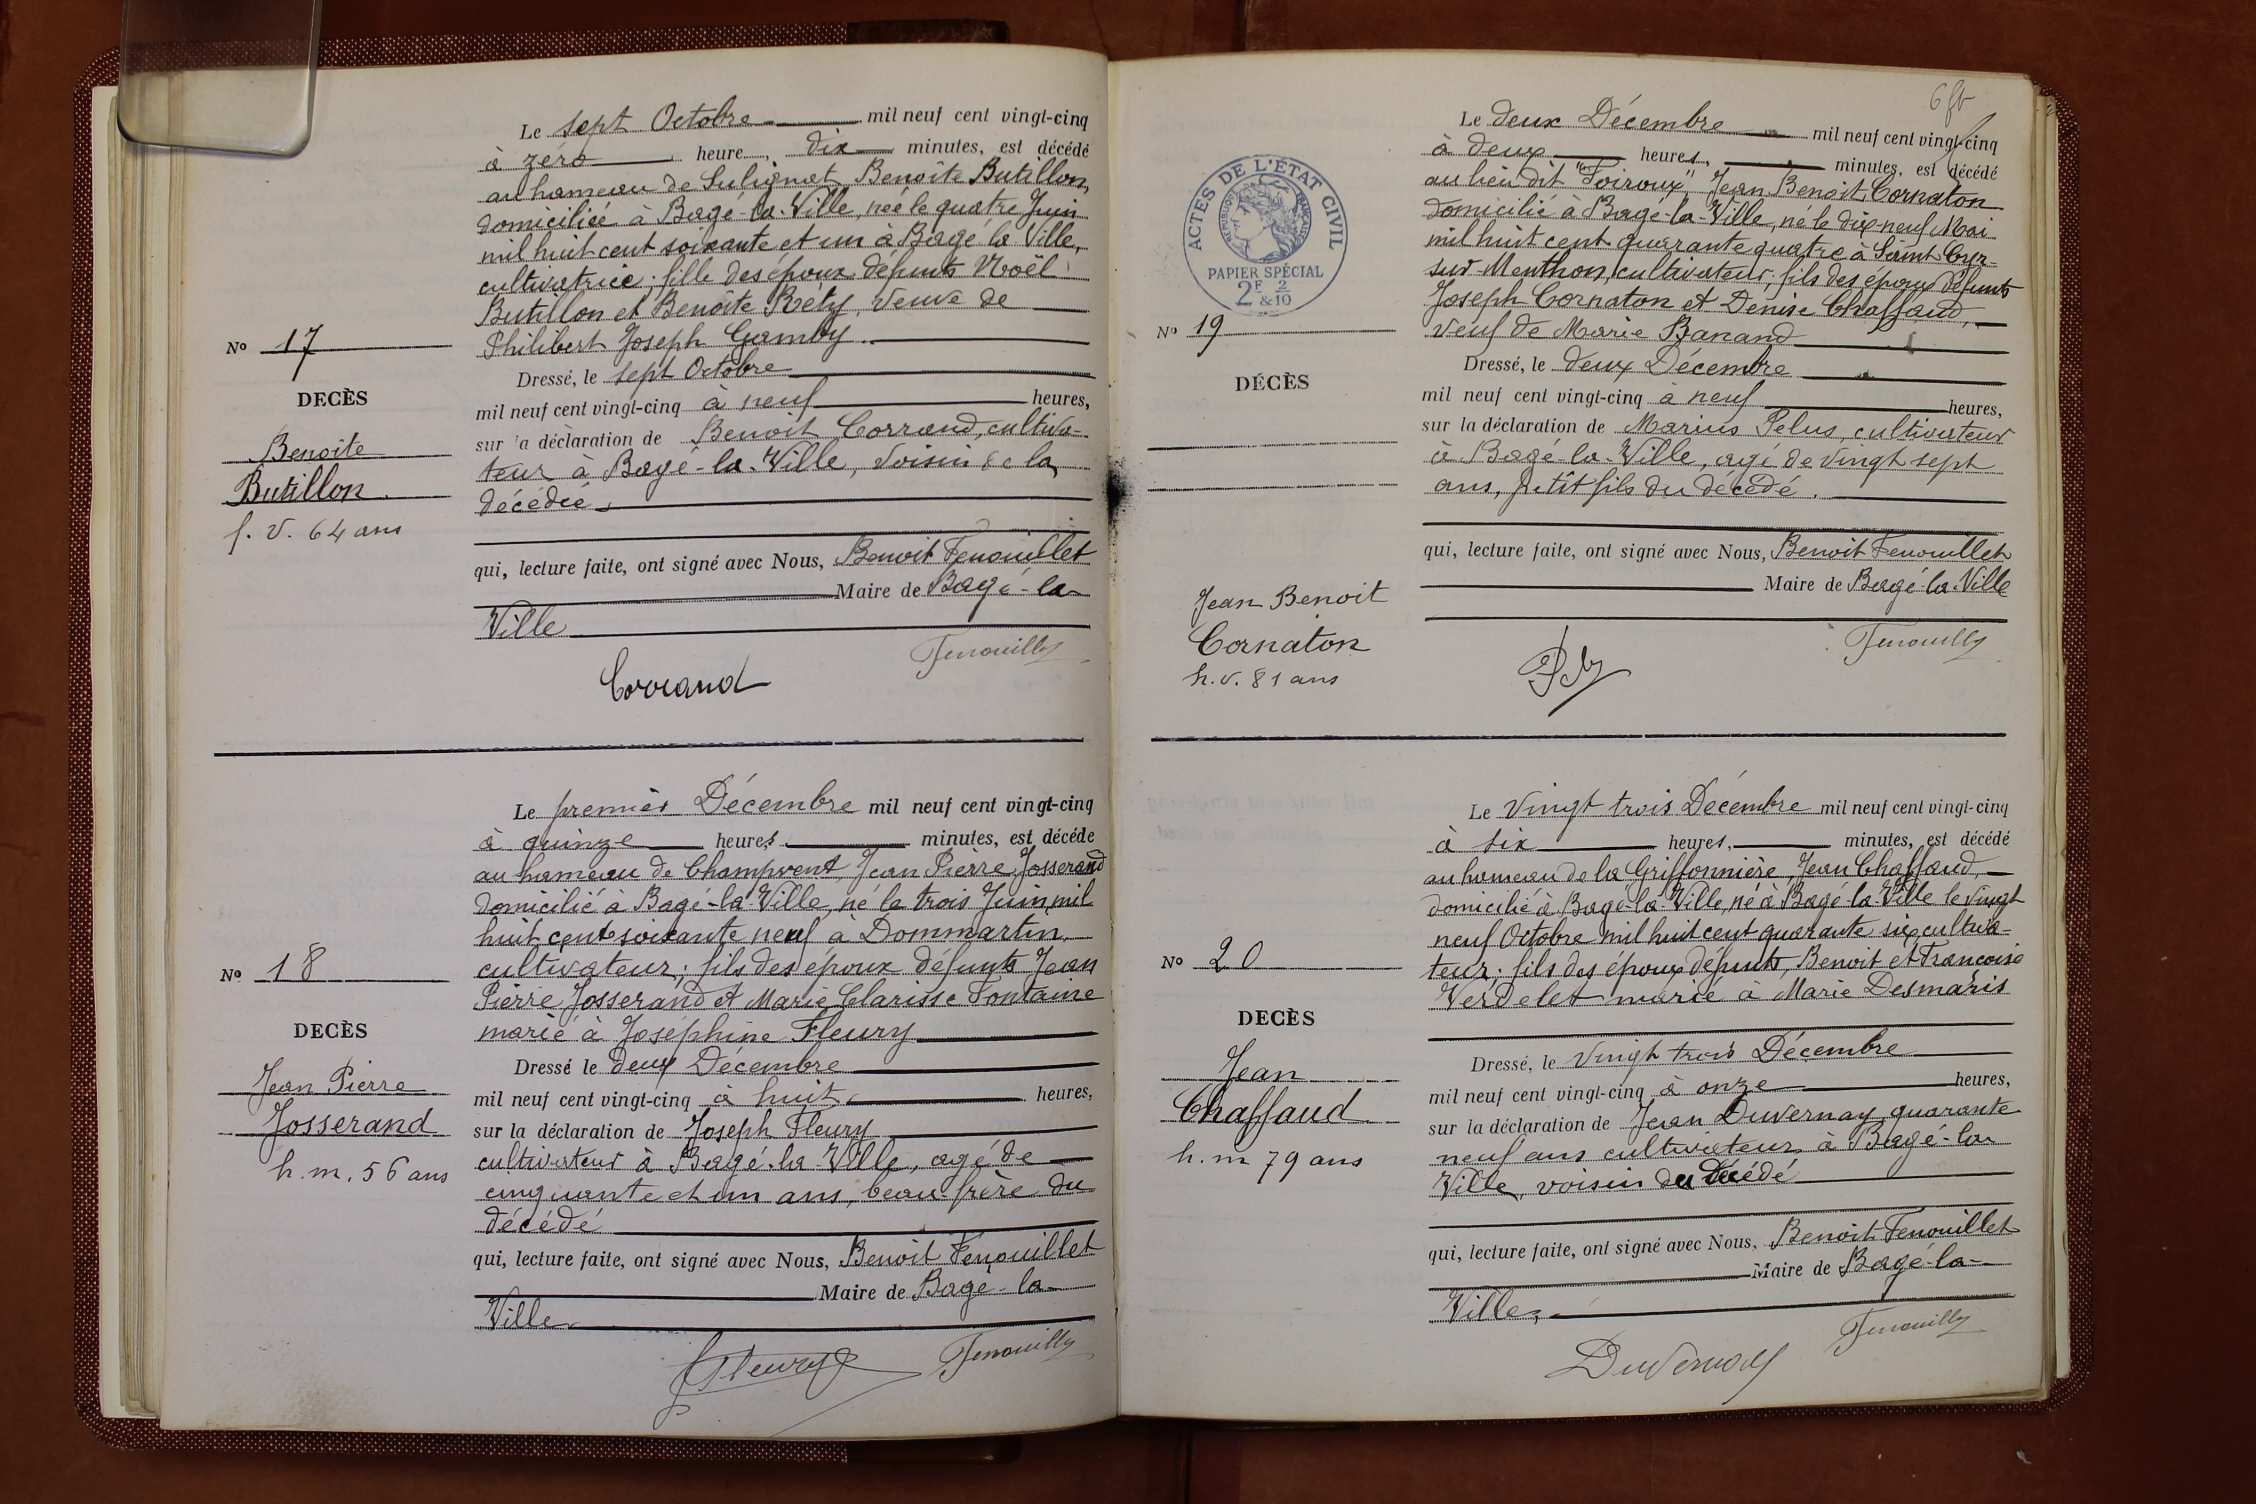 Le sept Octobre mil neuf cent vingt-cinq
à zéro heure, dix minutes, est décédé
au hameau de Sulignat, Benoîte Butillon,
domiciliée à Bagé-la-Ville, née le quatre Juin
mil huit cent soixante et un à Bagé la Ville,
cultivatrice; fille des époux défunts Noël
Butillon et Benoîte Réty, veuve de
Philibert Joseph Gamby.
Nº 17
DECÈS
Benoîte
Butillon.
f. v. 64 ans
Dressé, le sept Octobre
mil neuf cent vingt-cinq à neuf heures,
sur la déclaration de Benoit Corrand, cultiva-
teur à Bagé-la-Ville, voisin de la
décédée
qui, lecture faite, ont signé avec Nous, Benoit Fenouillet
Maire de Bagé-la-
Ville
Corrand
Le premier Décembre mil neuf cent vingt-cinq
à quinze heures minutes, est décéde
au hameau de Champvent, Jean Pierre Josserand
domicilié à Bagé-la-Ville, né le trois Juin mil
huit cent soixante neuf à Dommartin,
cultivateur; fils des époux défunts Jean
Pierre Josserand et Marie Clarisse Fontaine
marié à Joséphine Fleury
Nº 18
DECÈS
Jean Pierre
Josserand
h.m. 56 ans
Dressé le deux Décembre
mil neuf cent vingt-cinq à huit heures,
sur la déclaration de Joseph Fleury
cultivateur à Bagé-la-Ville, agé de
cinquante et un ans, beau-frère du
décédé
qui, lecture faite, ont signé avec Nous, Benoit Fenouillet
Maire de Bagé-la-
Ville
Fleury
ACTES DE L'ÉTAT CIVIL
RÉPUBLIQUE FRANÇAISE
PAPIER SPÉCIAL
2F & 2/10
Le deux Décembre mil neuf cent vingt-cinq
à deux heures, minutes, est décédé
au lieu dit "Toiroux" Jean Benoit Cornaton
domicilié à Bagé-la-Ville, né le dix-neuf Mai
mil huit cent quarante quatre à Saint Cyr-
sur-Menthon, cultivateur; fils des époux défunts
Joseph Cornaton et Denise Chaffaud,
veuf de Marie Banand
Nº 19
DÉCÈS
Jean Benoit
Cornaton
h.v. 81 ans
Dressé, le deux Décembre
mil neuf cent vingt-cinq à neuf heures,
sur la déclaration de Marius Pelus, cultivateur
à Bagé-la-Ville, agé de vingt sept
ans, petit fils du décédé.
qui, lecture faite, ont signé avec Nous, Benoit Fenouillet
Maire de Bagé-la-Ville
Le vingt trois Décembre mil neuf cent vingt-cinq
à six heures, minutes, est décédé
au hameau de la Griffonnière, Jean Chaffaud,
domicilié à Bagé-la-Ville, né à Bagé-la-Ville le vingt
neuf Octobre mil huit cent quarante six, cultiva-
teur; fils des époux défunts, Benoit et Françoise
Verdelet marié à Marie Desmaris
Nº 20
DECÈS
Jean
Chaffaud
h.m 79 ans
Dressé, le vingt trois Décembre
mil neuf cent vingt-cinq à onze heures,
sur la déclaration de Jean Duvernay, quarante
neuf ans cultivateur à Bagé-la-
Ville, voisin du décédé
qui, lecture faite, ont signé avec Nous, Benoit Fenouillet
Maire de Bagé-la-
Ville,
Duvernay